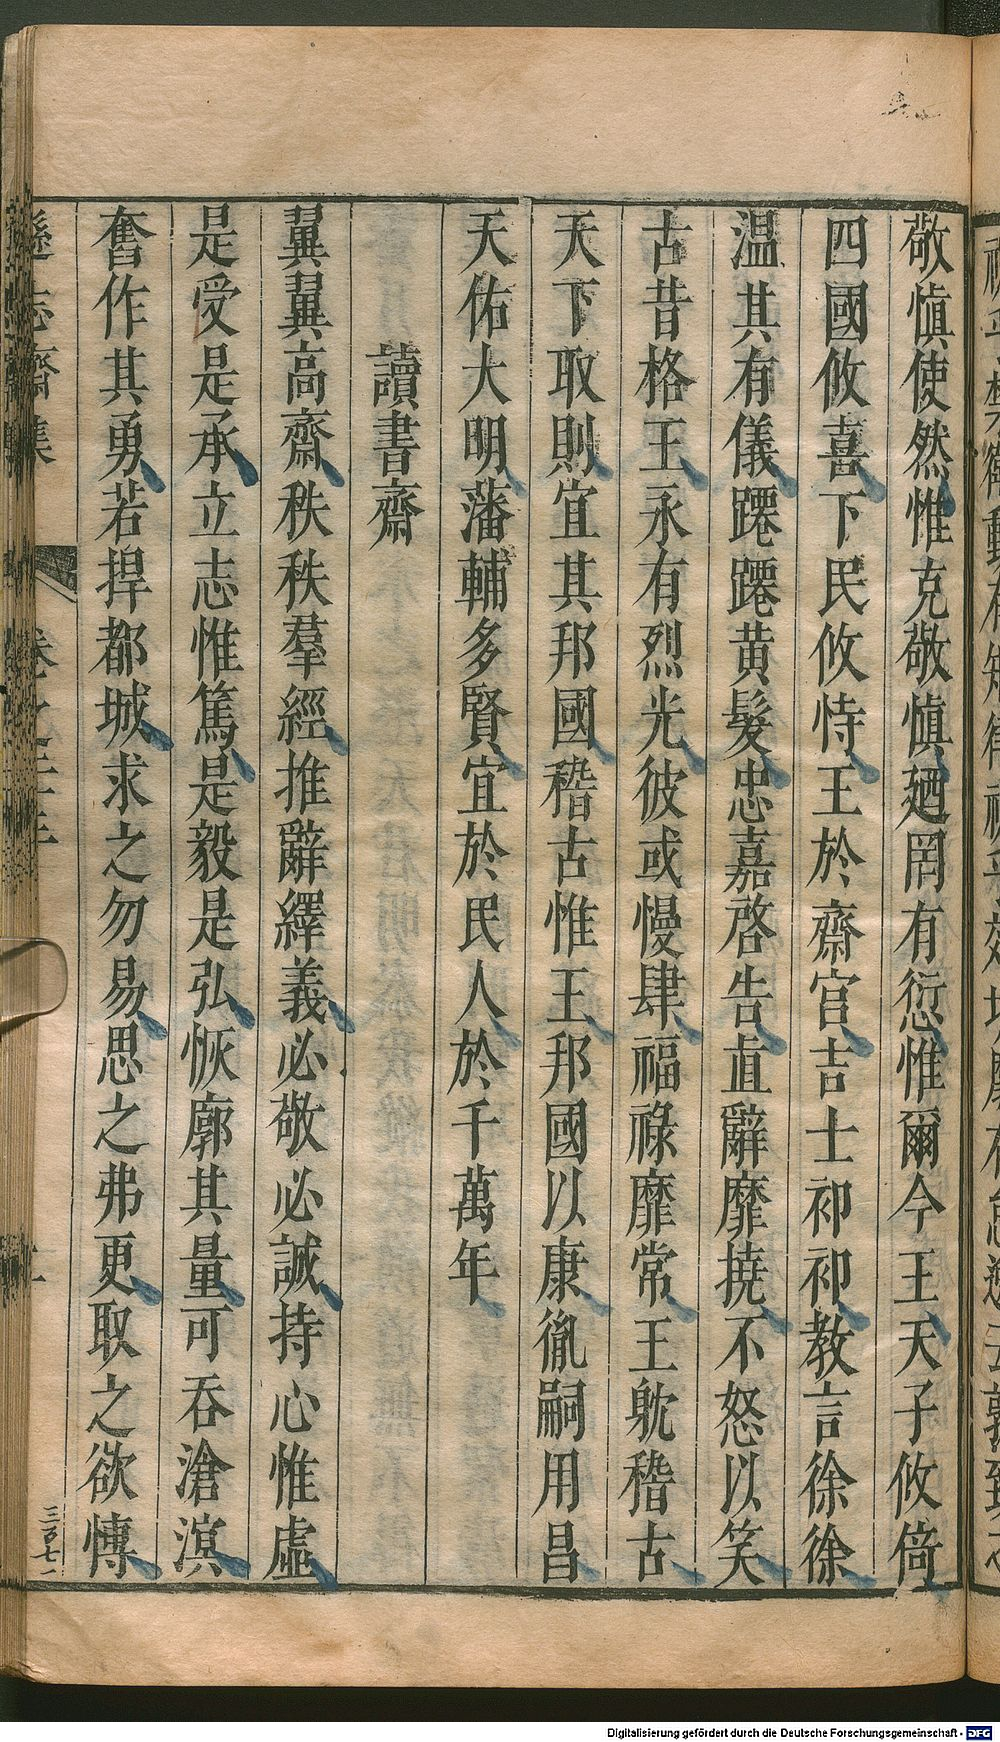 敬慎使然惟克敬慎廼罔有愆惟爾今王天子攸倚
四國攸喜下民攸恃王於齋宮吉士祁祁教言徐徐
溫其有儀蹮蹮黄髮忠嘉啓告直辭靡撓不怒以笑
古昔格王永有烈光彼或慢肆福祿靡常王躭稽古
天下取則宜其邦國稽古惟王邦國以康胤嗣用昌
天佑大明藩輔多賢宜於民人於千萬年
讀書齋
翼翼高齋秩秩羣經推辭繹義必敬必誠持心惟虛
是受是承立志惟篤是毅是弘恢廓其量可吞滄溟
奮作其勇若捍都城求之勿易思之弗更取之欲慱
遜志齋集
卷之二十
三百七一
Digitalisierung gefördert durch die Deutsche Forschungsgemeinschaft - DFG